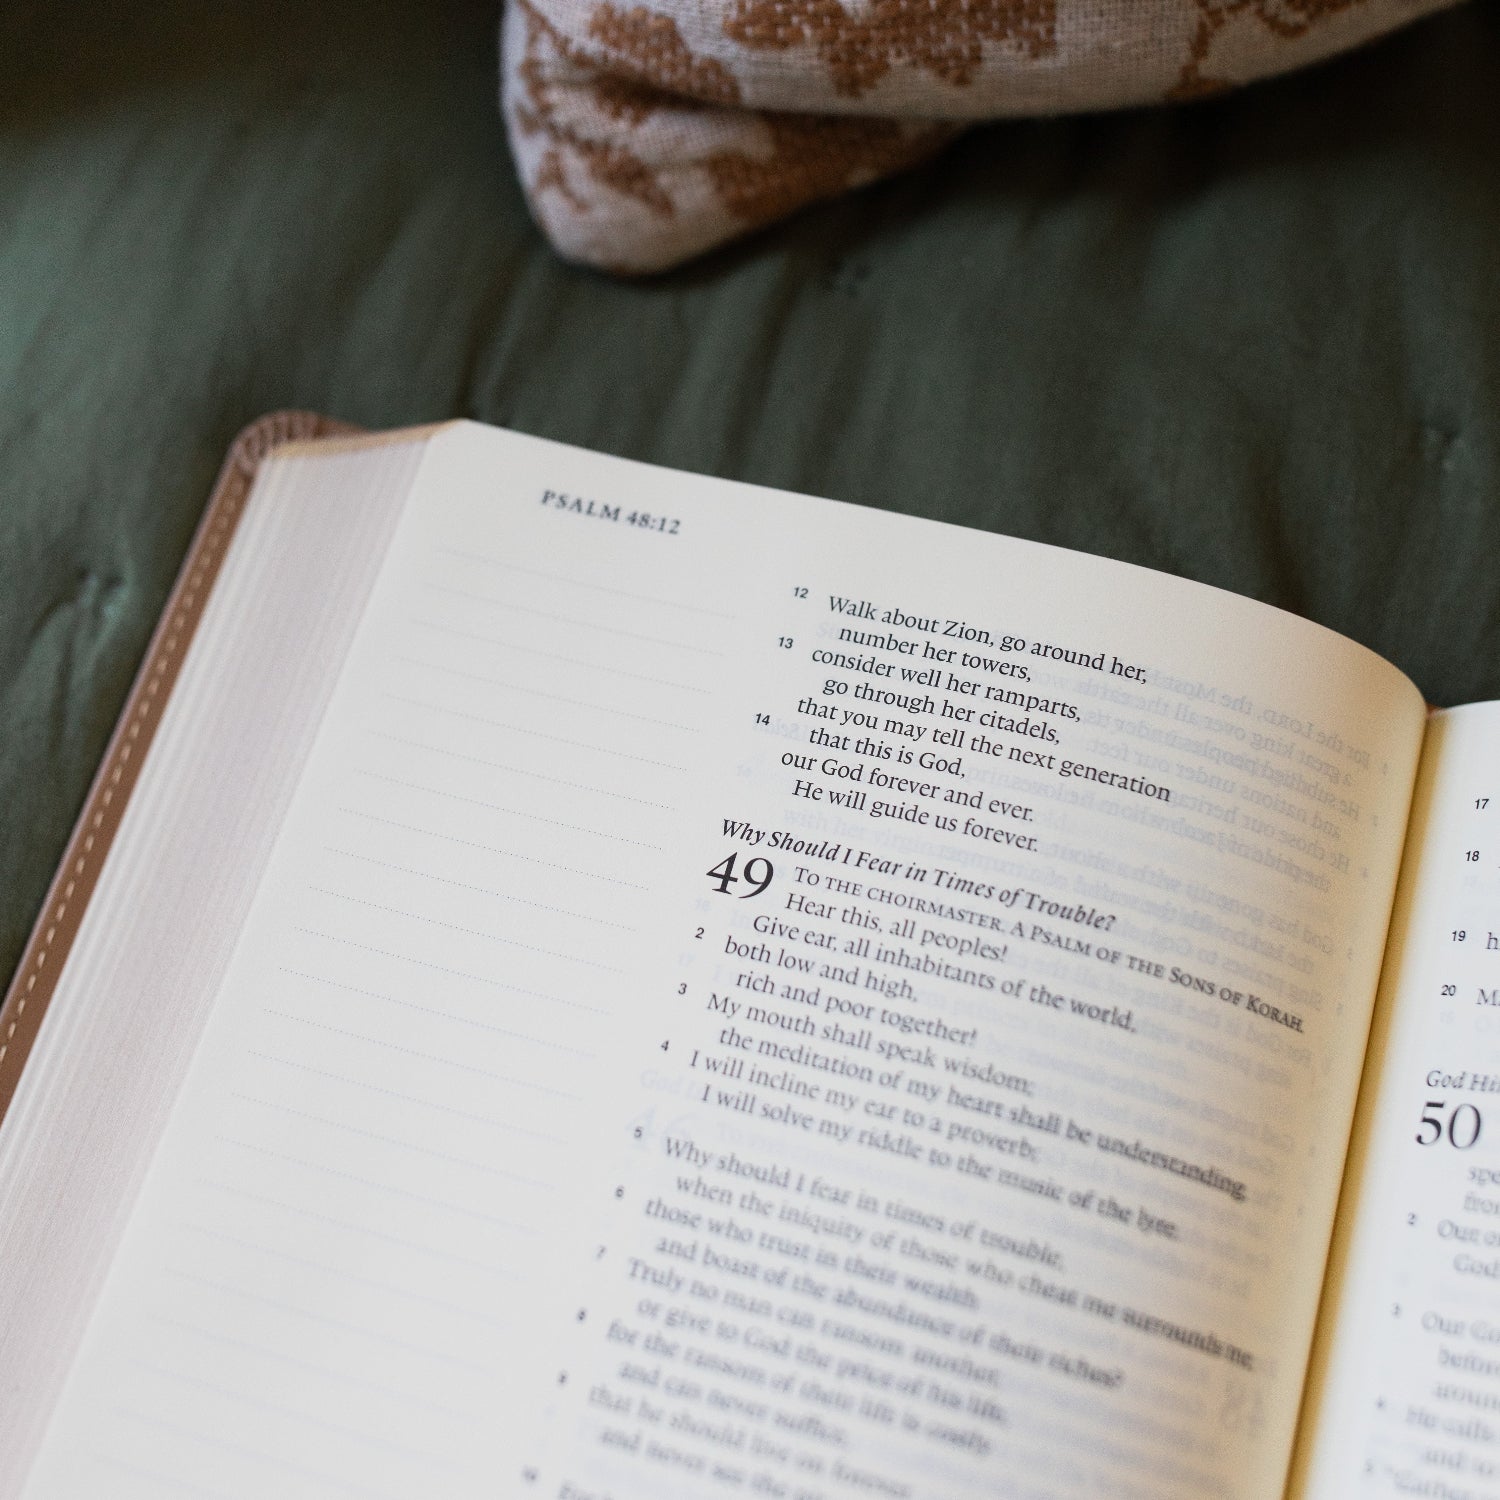 PSALM 48:12
12 Walk about Zion, go around her,
number her towers,
13 consider well her ramparts,
go through her citadels,
that you may tell the next generation
14 that this is God,
our God forever and ever.
He will guide us forever.
Why Should I Fear in Times of Trouble?
49 TO THE CHOIRMASTER. A PSALM OF THE SONS OF KORAH.
Hear this, all peoples!
Give ear, all inhabitants of the world,
2 both low and high,
rich and poor together!
3 My mouth shall speak wisdom;
the meditation of my heart shall be understanding.
4 I will incline my ear to a proverb;
I will solve my riddle to the music of the lyre.
5 Why should I fear in times of trouble,
when the iniquity of those who cheat me surrounds me,
6 those who trust in their wealth
and boast of the abundance of their riches?
7 Truly no man can ransom another,
or give to God the price of his life,
8 for the ransom of their life is costly
and can never suffice,
9 that he should live on forever
and never see the
10
17
18
19
20
God
50
2 Our
God
3 Our